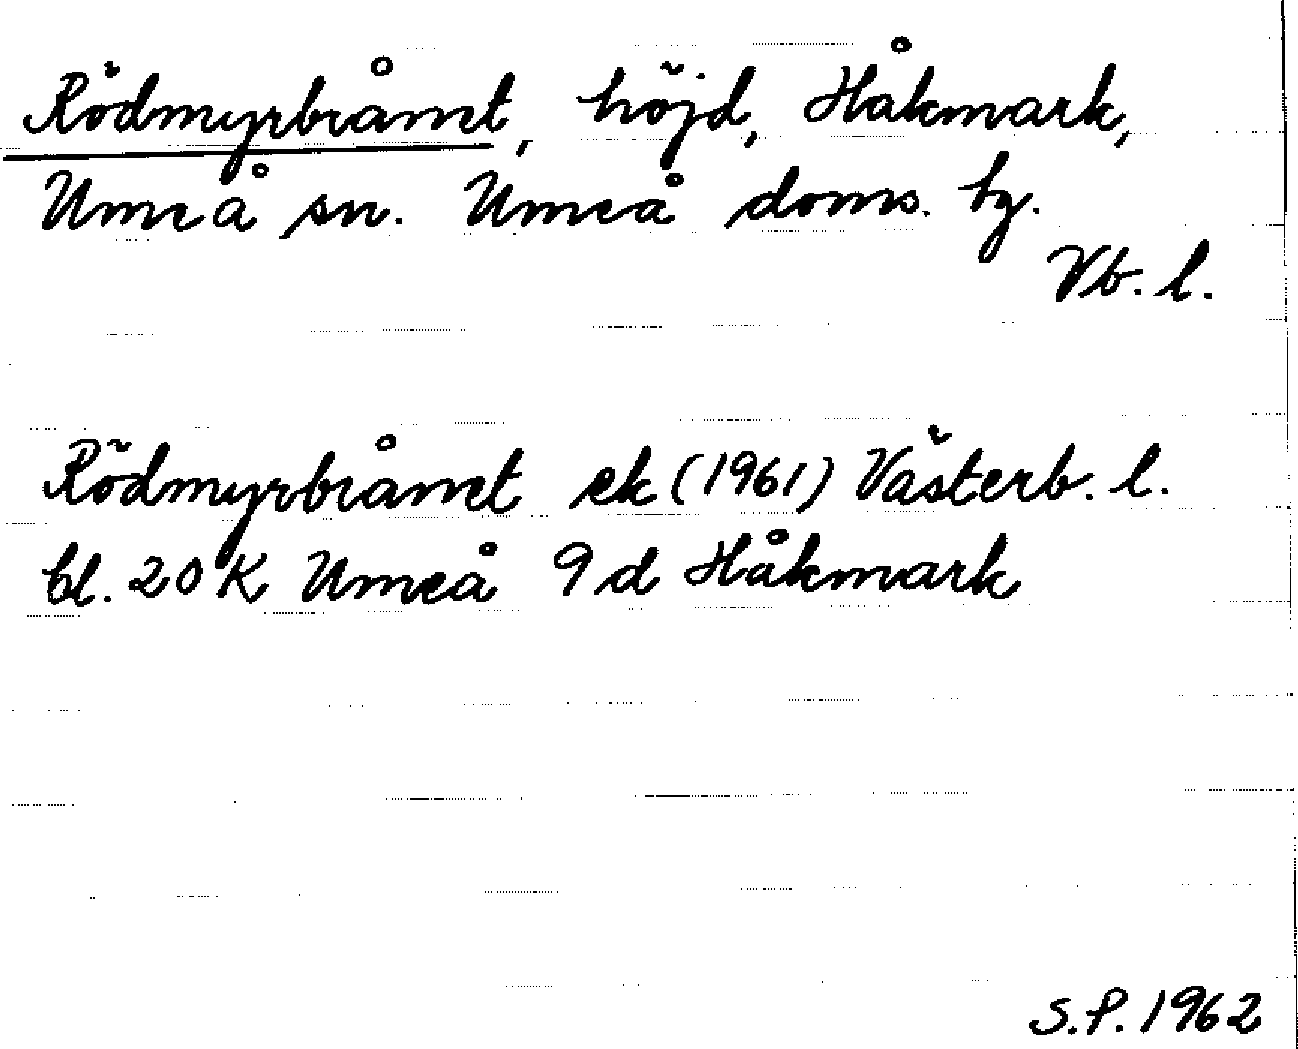 Rödmyrbrånet, höjd, Håkmark,
Umeå sn. Umeå doms. hg.
Vb. l.
Rödmyrbrånet ek (1961) Västerb. l.
bl. 20 K Umeå 9 d Håkmark
S.P. 1962